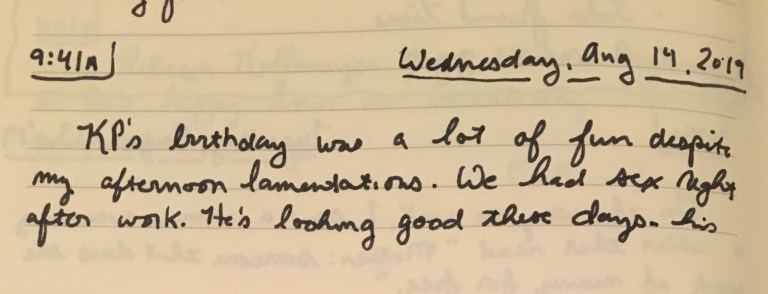 9:41A
Wednesday, Aug 14, 2019
KP's birthday was a lot of fun despite
my afternoon lamentations. We had sex right
after work. He's looking good these days. his